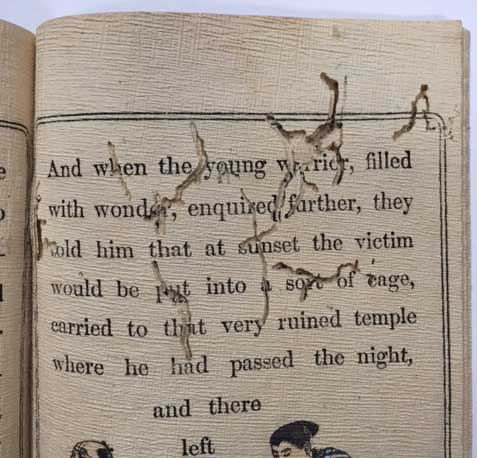 And when the young warrior, filled
with wonder, enquired further, they
told him that at sunset the victim
would be put into a sort of cage,
carried to that very ruined temple
where he had passed the night,
and there
left